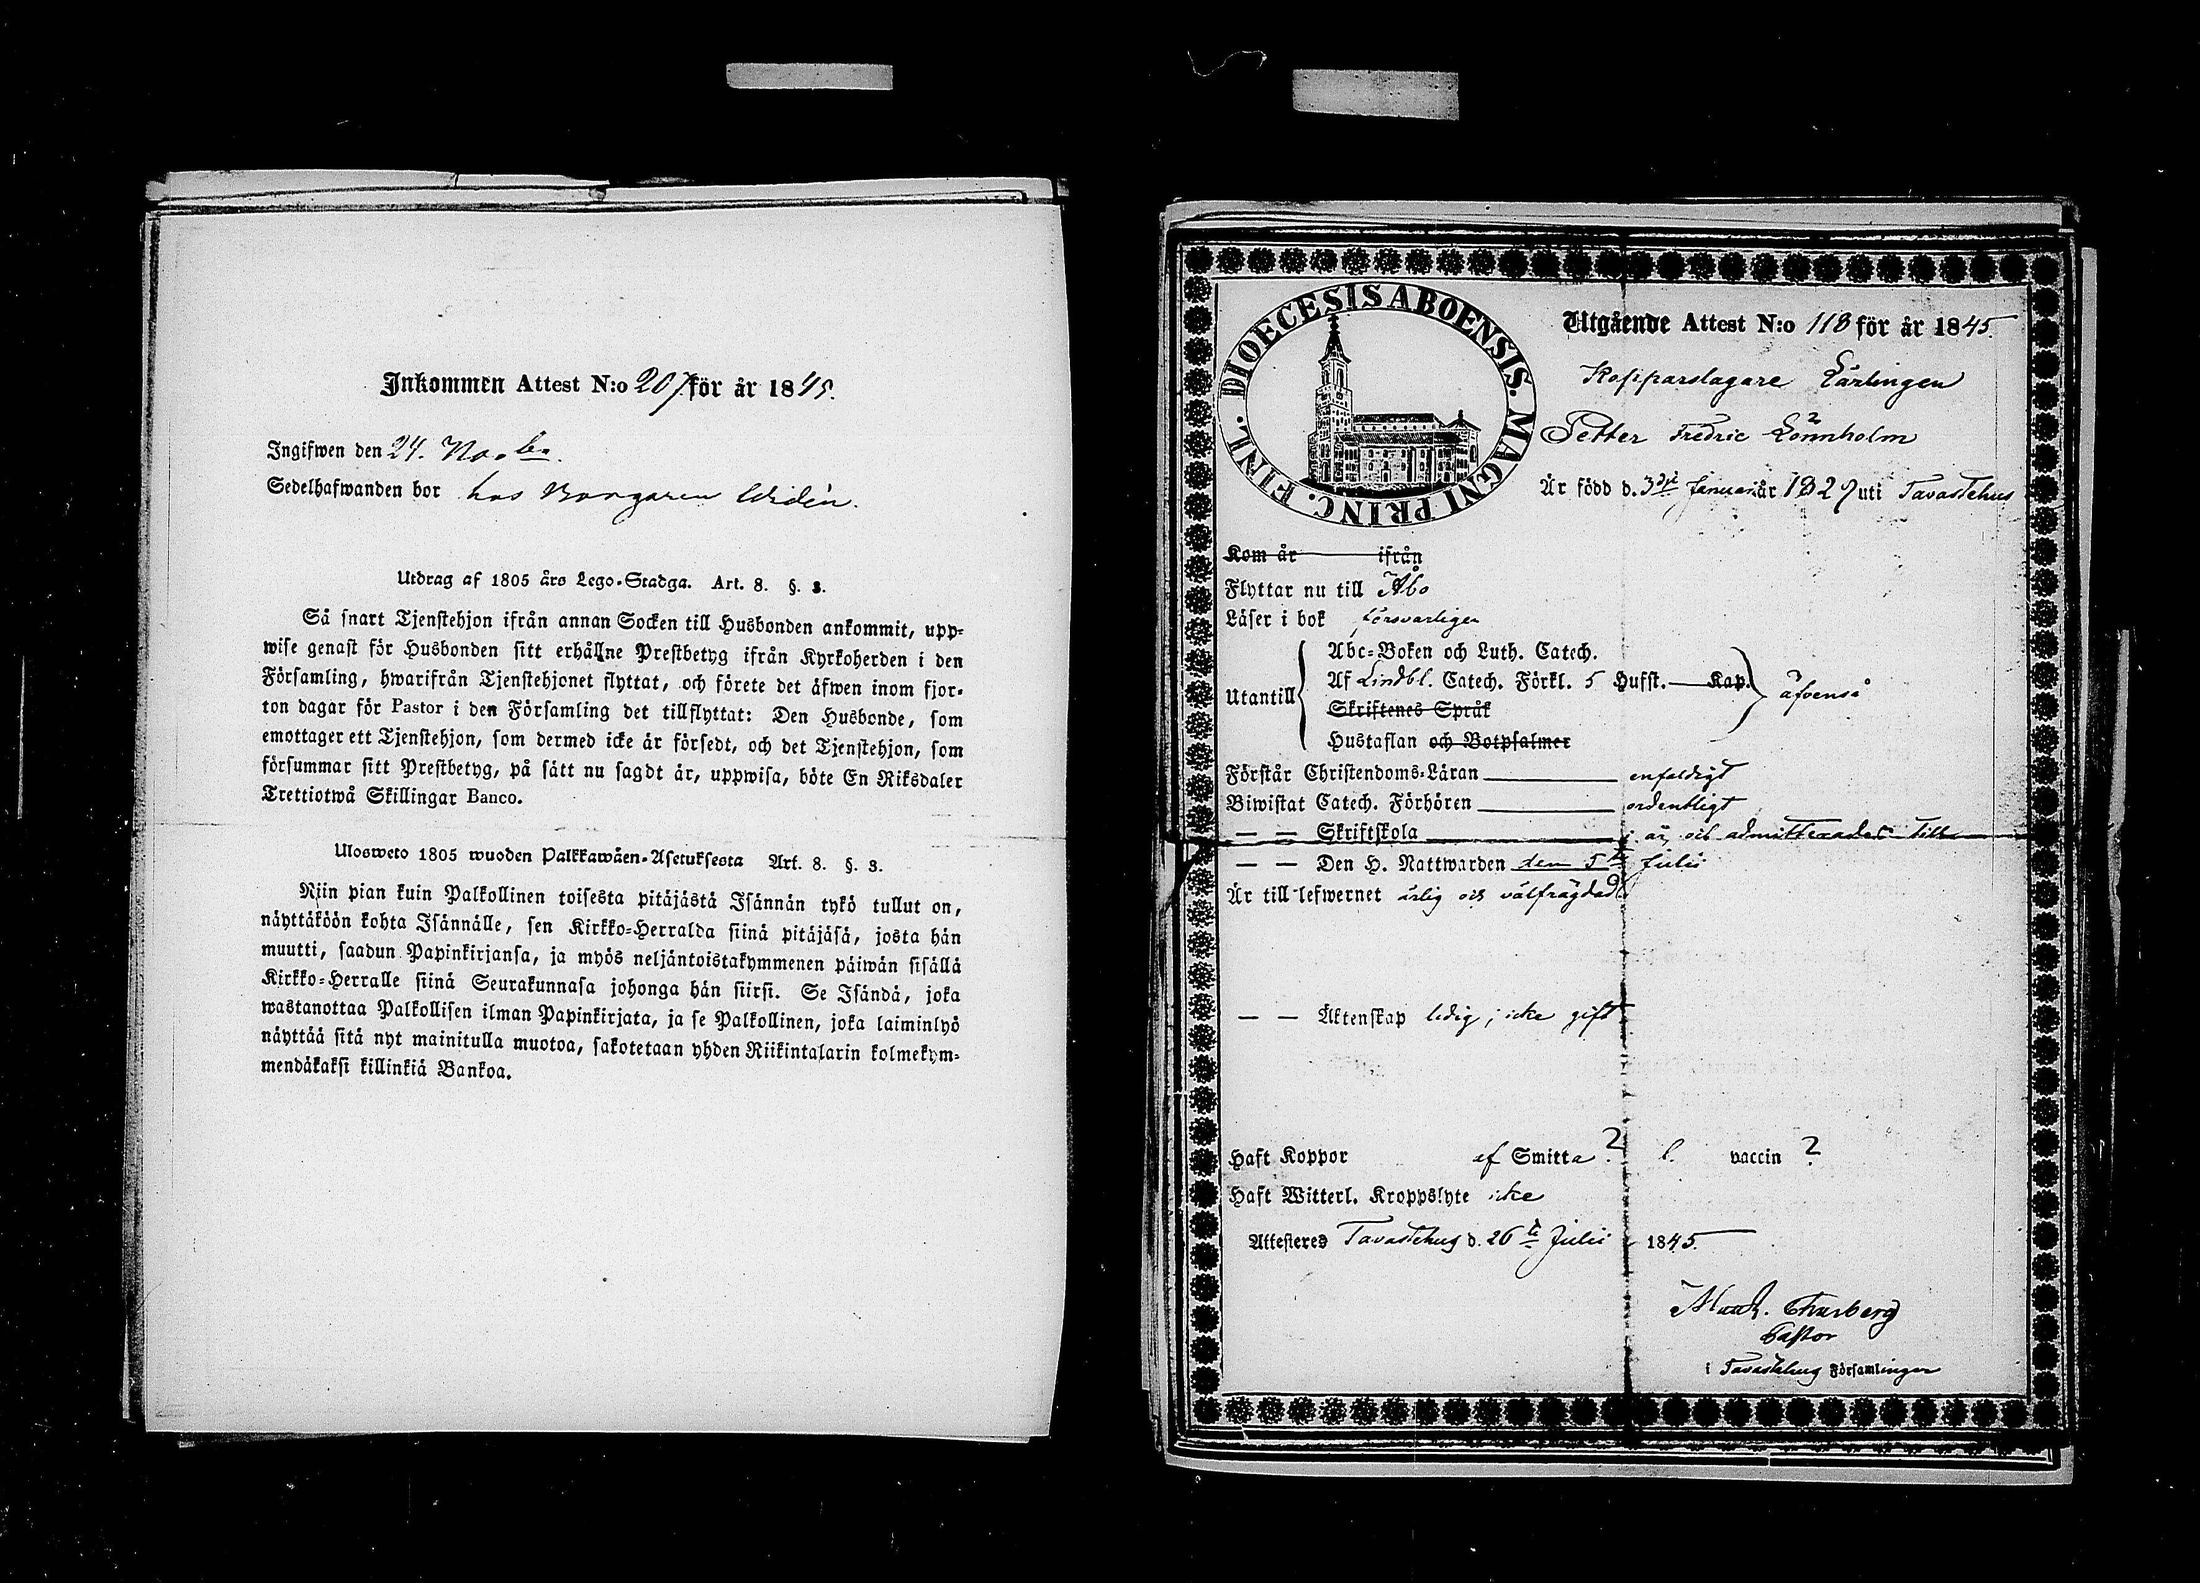 Inkommen Attest N:o 207 för år 1845.
Ingifwen den 24. Novbr.
Sedelhafwanden bor hos Borgaren Widén.
Utdrag af 1805 års Lego-Stadga. Art. 8. §. 3.
Så snart Tjenstehjon ifrån annan Socken till Husbonden ankommit, upp-
wise genast för Husbonden sitt erhållne Prestbetyg ifrån Kyrkoherden i den
Församling, hwarifrån Tjenstehjonet flyttat, och förete det äfwen inom fjor-
ton dagar för Pastor i den Församling det tillflyttat: Den Husbonde, som
emottager ett Tjenstehjon, som dermed icke är försedt, och det Tjenstehjon, som
försummar sitt Prestbetyg, på sätt nu sagdt är, uppwisa, böte En Riksdaler
Trettiotwå Skillingar Banco.
Ulosweto 1805 wuoden Palkkawäen-Asetuksesta Art. 8. §. 3.
Niin pian kuin Palkollinen toisesta pitäjästä Isännän tykö tullut on,
näyttäköön kohta Isännälle, sen Kirkko-Herralda siinä pitäjäsä, josta hän
muutti, saadun Papinkirjansa, ja myös neljäntoistakymmenen päiwän sisällä
Kirkko-Herralle siinä Seurakunnasa johonga hän siirsi. Se Isändä, joka
wastanottaa Palkollisen ilman Papinkirjata, ja se Palkollinen, joka laiminlyö
näyttää sitä nyt mainitulla muotoa, sakotetaan yhden Riikintalarin kolmekym-
mendäkaksi killinkiä Bankoa.
DIOECESIS ABOENSIS. MAGNI PRINC. FINL.
Utgående Attest N:o 118 för år 1845.
Kopparslagare Lärlingen
Petter Fredric Lönnholm
Är född d. 3dje Januari år 1827 uti Tavastehus
Kom år ifrån
Flyttar nu till Åbo
Läser i bok försvarligen
Utantill
Abc-Boken och Luth. Catech.
Af Lindbl. Catech. Förkl. 5 Hufst. — Kap.
Skriftenes Språk
Hustaflan och Botpsalmer
äfvenså
Förstår Christendoms-Läran enfaldigt
Biwistat Catech. Förhören ordentligt
— — Skriftskola i år och admitterades till
— — Den H. Nattwarden den 5te Julii
Är till lefwernet ärlig och välfrägdad
— — Äktenskap ledig; icke gift
Haft Koppor af Smitta ? l. vaccin ?
Haft Witterl. Kroppslyte icke
Attesteres Tavastehus d. 26te Julii 1845.
Pastor
i Tavastehus Församlingar